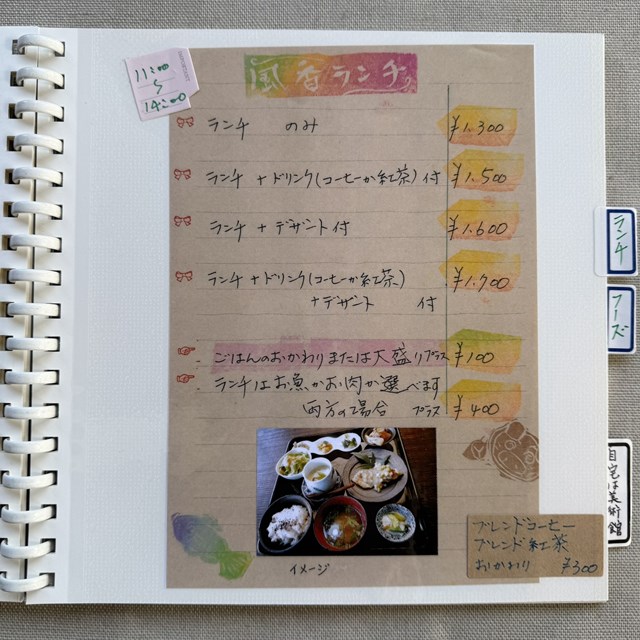 11:00
〜
14:00
風香ランチ
ランチ のみ ¥1.300
ランチ + ドリンク(コーヒーか紅茶) 付 ¥1.500
ランチ + デザート付 ¥1.600
ランチ + ドリンク(コーヒーか紅茶)
+デザート 付 ¥1.700
ごはんのおかわりまたは大盛りプラス ¥100
ランチはお魚かお肉か選べます
両方の場合 プラス ¥400
イメージ
ブレンドコーヒー
ブレンド紅茶
おかわり ¥300
ランチ
フーズ
自宅は美術館